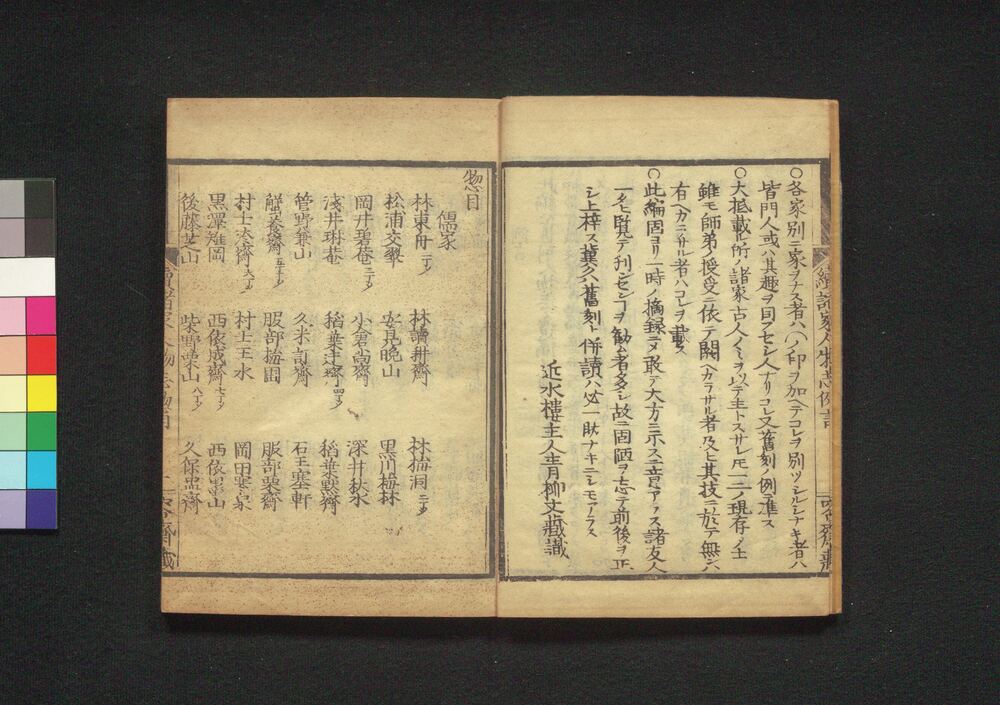 ○各家別ニ家ヲナス者ハ〵ノ印ヲ加ヘテコレヲ別ツシルシナキ者ハ
皆門人或ハ其趣ヲ同フセシ人ナリコレ又舊刻ノ例ニ准ス
○大抵載ル所ノ諸家古人ノミヲ以テ主トスサレモ一二ノ現存ノ士
雖モ師弟ノ授受ニ依テ闕ヘカラサル者及ヒ其技ニ於テ無ンハ
有ヘカラサル者ハコレヲ載ス
○此編固ヨリ一時ノ摘録ニメ敢テ大方ニ示スニ意アラス諸友人
一タヒ覧テ刊センヿヲ勧ル者多シ故ニ固陋ヲ忘テ前後ヲ正
シ上梓ス冀クハ舊刻ト併讀ハ必一助ナキニシモアラス
近水樓主人青柳文蔵識
續諸家人物志例言
惣目
儒家
林東舟 二丁メ 林讀耕齋 林梅洞 二丁メ
松浦交翠 安見晩山 黒川梅林
岡井碧菴 三丁メ 小倉尚齋 深井秋水
淺井琳菴 稲葉迂齋 四丁メ 稲葉黙齋
菅野兼山 久米訂齋 石王塞軒
蟹養齋 五丁メ 服部梅圃 服部栗齋
村士淡齋 六丁メ 村士玉水 岡田寒泉
黒澤雉岡 西依成齋 七丁メ 西依墨山
後藤芝山 柴野栗山 八丁メ 久保盅齋